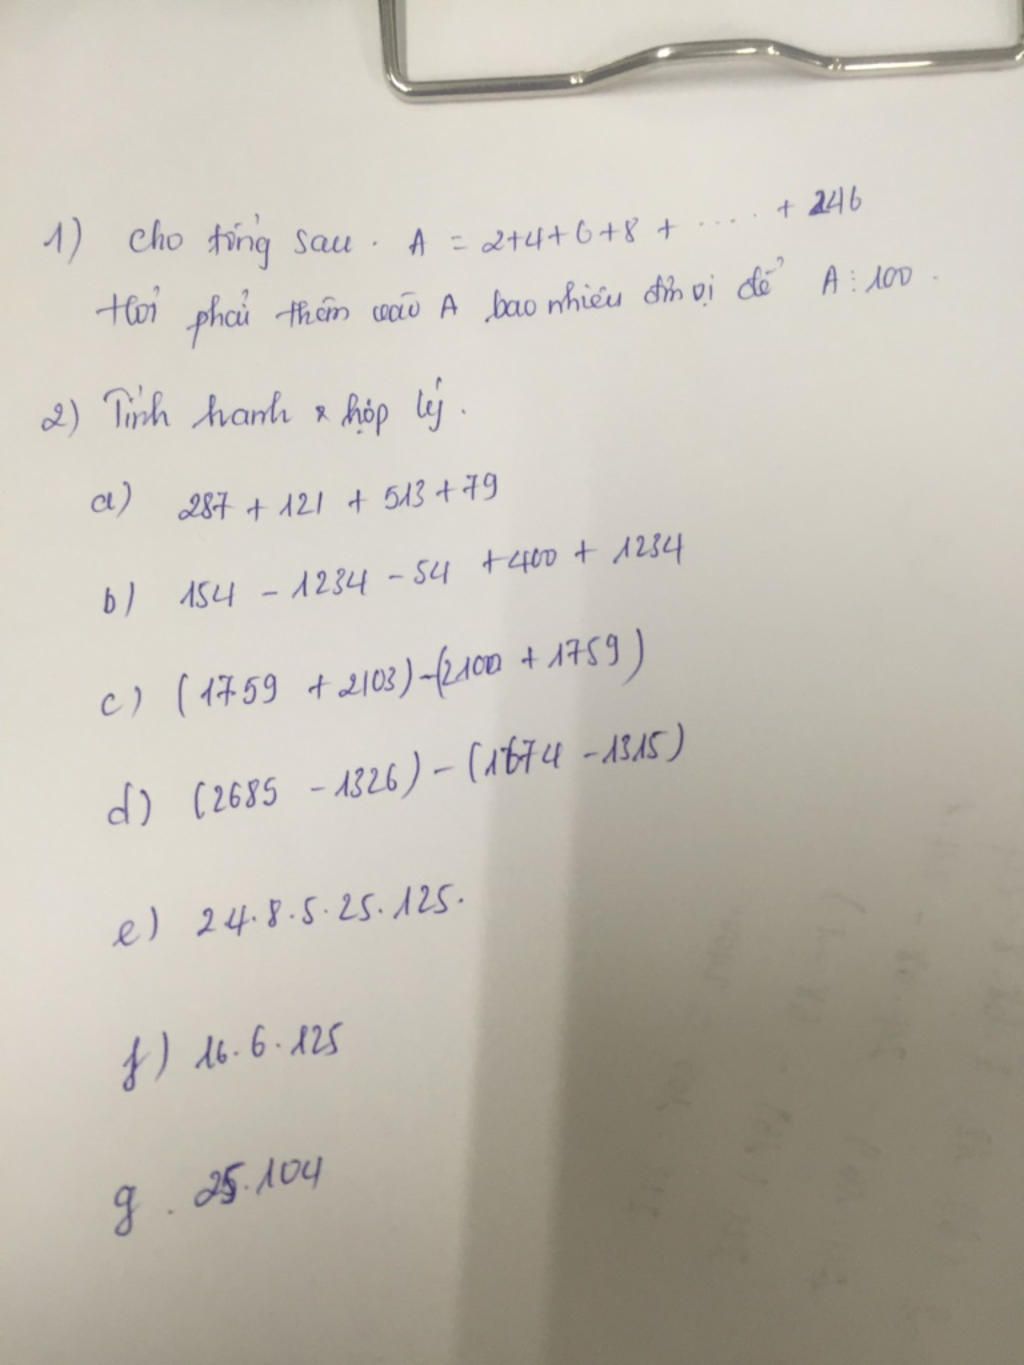 1) Cho tổng sau. A = 2+4+6+8 + ..... + 246
Hỏi phải thêm vào A bao nhiêu đơn vị để A ⋮ 100.
2) Tính nhanh & hợp lý.
a) 287 + 121 + 513 + 79
b) 154 - 1234 - 54 + 400 + 1234
c) (1759 + 2103) - (2100 + 1759)
d) (2685 - 1326) - (1674 - 1315)
e) 24.8.5.25.125.
f) 16.6.125
g. 25.104